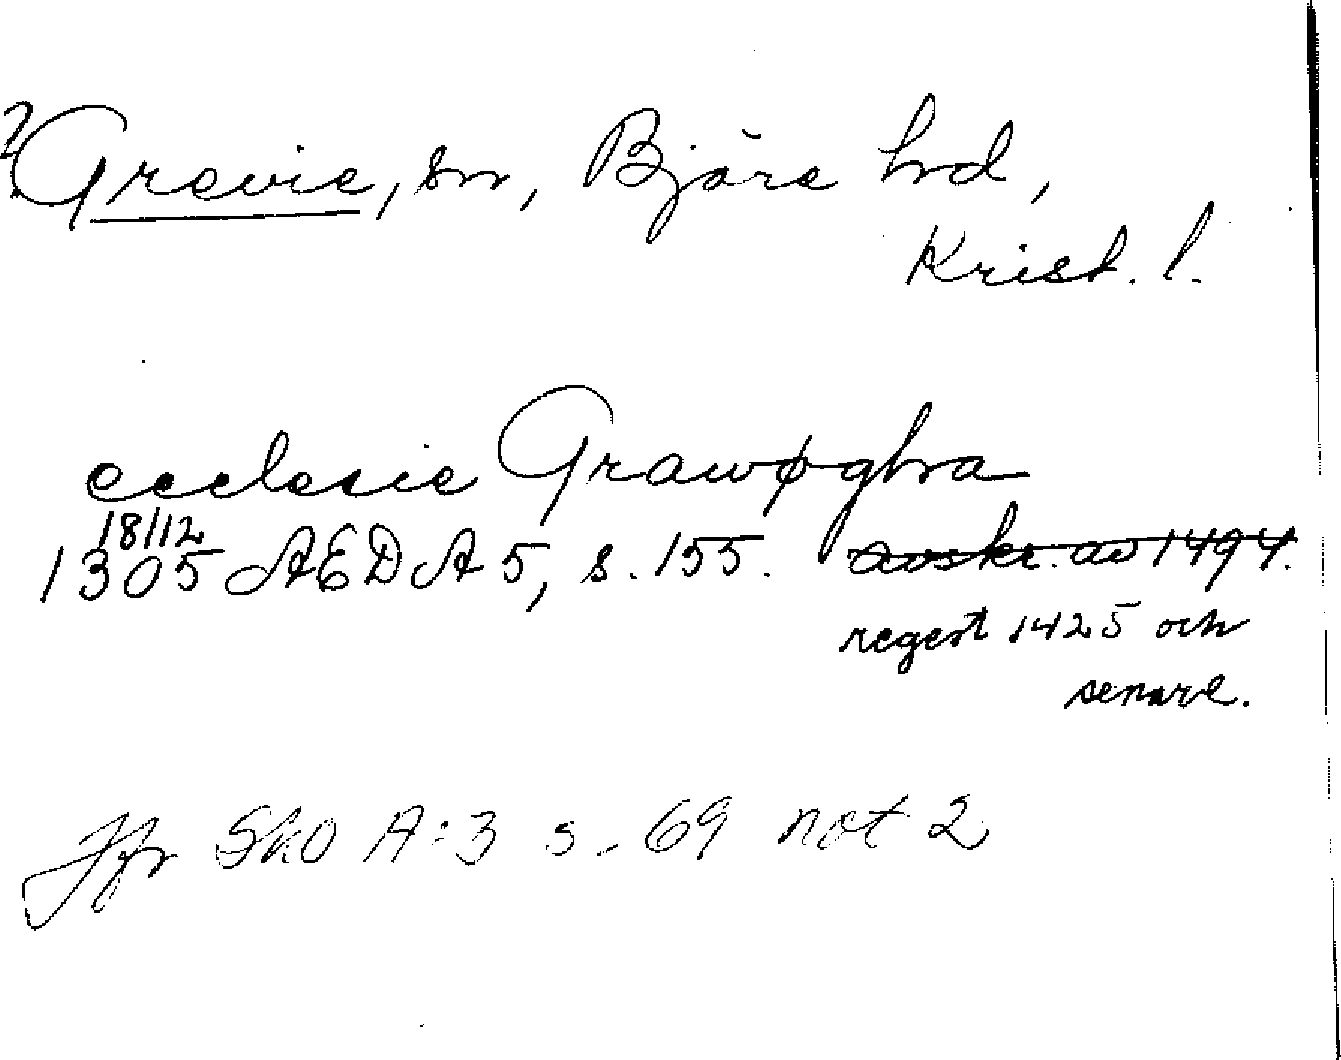 ?Grevie, sn, Bjäre hd,
Krist. l.
ecclesie Grawøghra
18/12
1305 AEDA 5, s. 155. avskr. av 1494.
regest 1425 och
senare.
Jfr SkO A:3 s. 69 not 2